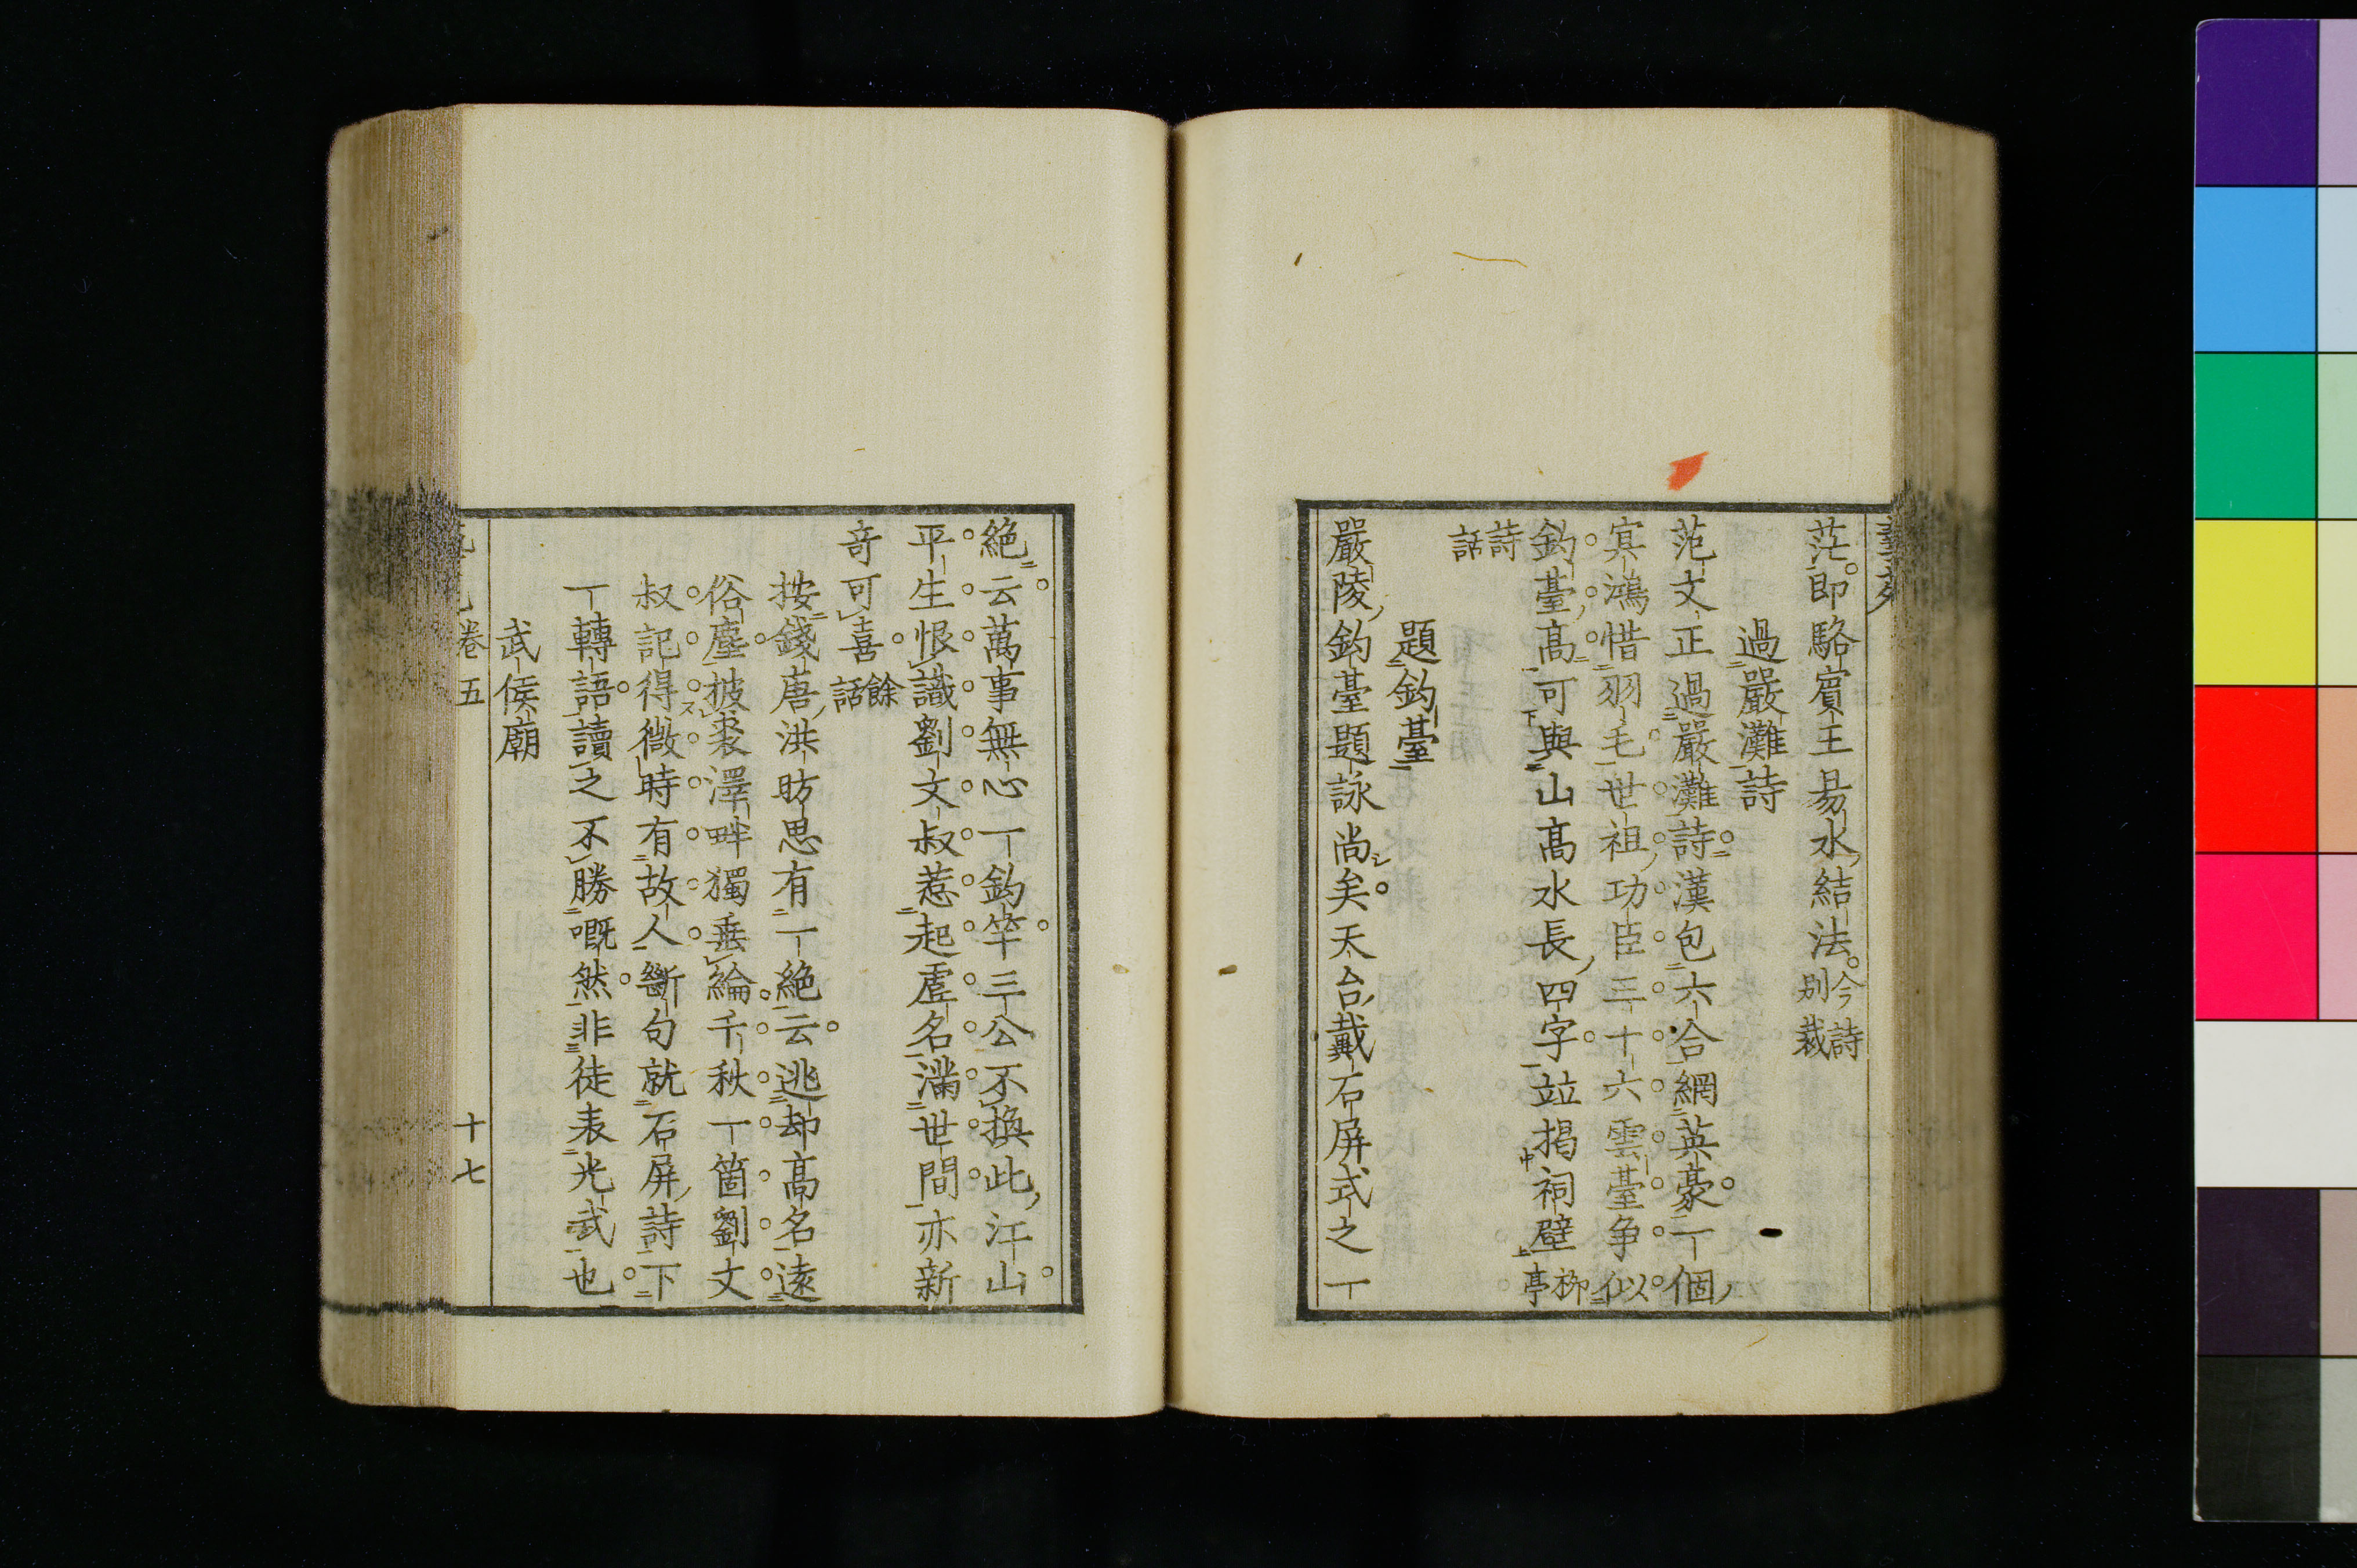 茫即駱賓王易水結法今詩別裁
過嚴灘詩
范文正過嚴灘詩漢包六合網英豪一個
冥鴻惜羽毛世祖功臣三十六雲臺争似
釣臺高可與山高水長四字竝揭祠壁栁亭
詩話
題釣臺
嚴陵釣臺題詠尚矣天台戴石屏式之一
絶云萬事無心一釣竿三公不換此江山
平生恨識劉文叔惹起虛名滿世間亦新
奇可喜餘話
按錢唐洪昉思有一絶云逃却高名遠
俗塵披裘澤畔獨垂綸千秋一箇劉文
叔記得微時有故人斷句就石屏詩下
一轉語讀之不勝嘅然非徒表光武也
武侯廟
卷五
十七